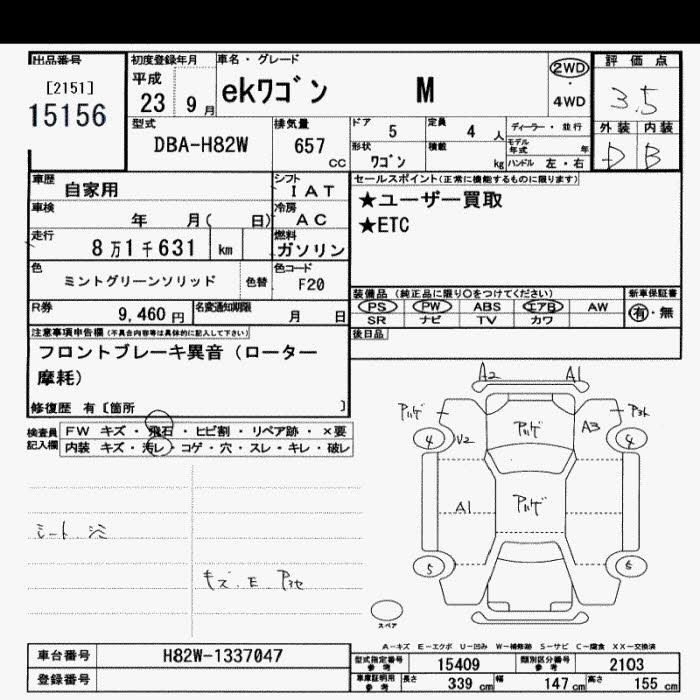 出品番号
[2151]
15156
初度登録年月
平成
23 9月
車名・グレード
ekワゴン M
2WD
・
4WD
評価点
3.5
外装 内装
D B
型式
DBA-H82W
排気量
657 cc
ドア 5
定員 4人
形状 ワゴン
積載 kg
ディーラー・並行
モデル年式 年
ハンドル 左・右
車歴 自家用
シフト IAT
車検 年 月( 日)
冷房 AC
走行 8万1千631 km
燃料 ガソリン
色 ミントグリーンソリッド 色替
色コード F20
R券 9,460円
名変通知期限 月 日
セールスポイント(正常に機能するものに限ります)
★ユーザー買取
★ETC
装備品(純正品に限り○をつけてください)
PS PW ABS エアB AW
SR ナビ TV カワ
新車保証書
有・無
後日品
注意事項申告欄(不具合内容等は具体的に記入して下さい)
フロントブレーキ異音(ローター
摩耗)
修復歴 有〔箇所 〕
検査員記入欄
FW キズ・飛石・ヒビ割・リペア跡・×要
内装 キズ・汚レ・コゲ・穴・スレ・キレ・破レ
シート シミ
キズ.E
A2 A1
4 V2 A3 4
A1
5 6
スペア
A-キズ E-エクボ U-凹み W-補修跡 S-サビ C-腐食 XX-交換済
車台番号 H82W-1337047
登録番号
型式指定番号参考 15409
類別区分番号参考 2103
車庫証明用参考 長さ 339cm 幅 147cm 高さ 155cm